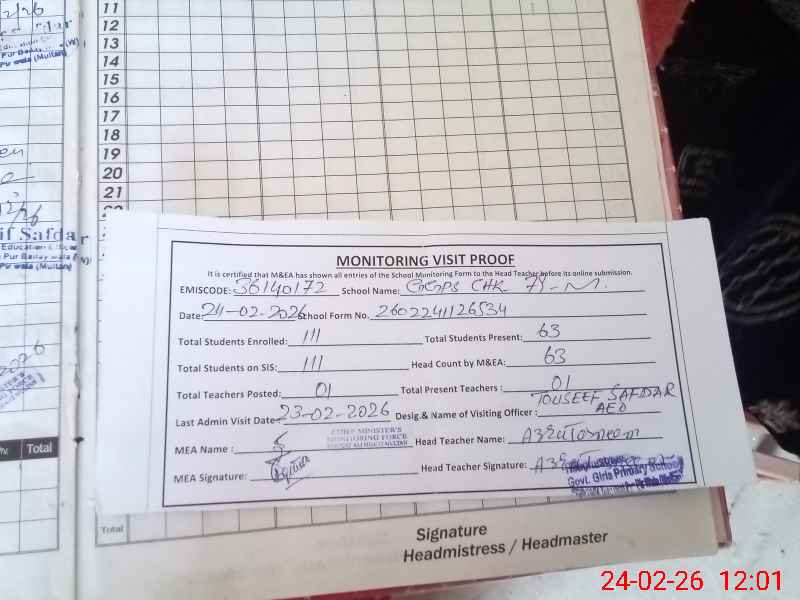 11
12
13
14
15
16
17
18
19
20
21
if Safdar
MONITORING VISIT PROOF
It is certified that M&EA has shown all entries of the School Monitoring Form to the Head Teacher before its online submission.
EMISCODE: 36140172 School Name: GGPS CHK 71-M.
Date: 24-02-2026 School Form No. 2602241126534
Total Students Enrolled: 111 Total Students Present: 63
Total Students on SIS: 111 Head Count by M&EA: 63
Total Teachers Posted: 01 Total Present Teachers : 01
Last Admin Visit Date: 23-02-2026 Desig.& Name of Visiting Officer : TOUSEEF SAFDAR AEO
MEA Name : CHIEF MINISTER'S MONITORING FORCE Head Teacher Name:
MEA Signature: Head Teacher Signature:
Govt. Girls Primary School
Total
Total
Signature
Headmistress / Headmaster
24-02-26 12:01